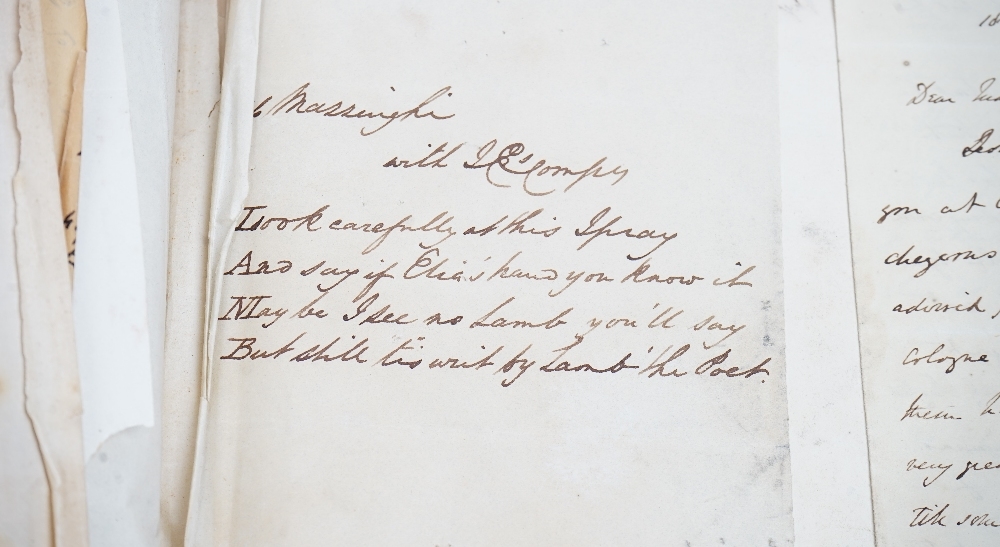 Massinghi
with I E's Comps
Look carefully at this I pray
And say if Elia's hand you know it
May be I see no Lamb you'll say
But still 'tis writ by Lamb the Poet.
18
Dear
you at
Cologne
them
very